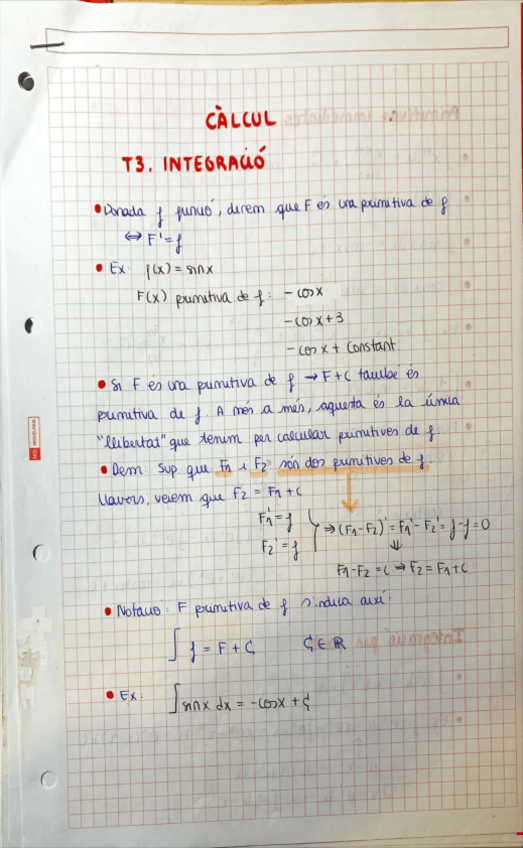 CÀLCUL
T3. INTEGRACIÓ
• Donada f funció, direm que F és una primitiva de f
⇔ F' = f
• Ex: f(x) = sinx
F(x) primitiva de f: -cosx
-cosx+3
-cosx + constant
• Si F és una primitiva de f → F+C també és
primitiva de f. A més a més, aquesta és la única
"llibertat" que tenim per calcular primitives de f.
• Dem: Sup que F1 i F2 són dos primitives de f.
Llavors, veiem que F2 = F1 + C
F1' = f
F2' = f
⇒ (F1-F2)' = F1' - F2' = f-f = 0
⇓
F1-F2 = C ⇒ F2 = F1+C
• Notació: F primitiva de f s'indica així:
∫ f = F + C, C ∈ ℝ
• Ex: ∫ sinx dx = -cosx + C